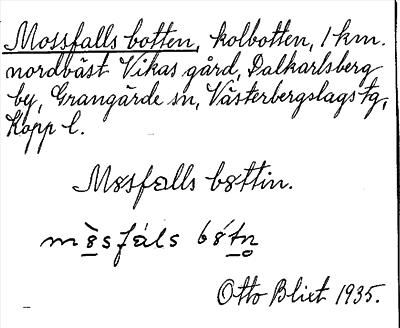 Mossfalls botten, kolbotten, 1 km.
nordväst Vikas gård, Dalkarlsberg
by, Grangärde sn, Västerbergslags tg,
Kopp l.
Møsfalls bøttin.
Otto Blixt 1935.